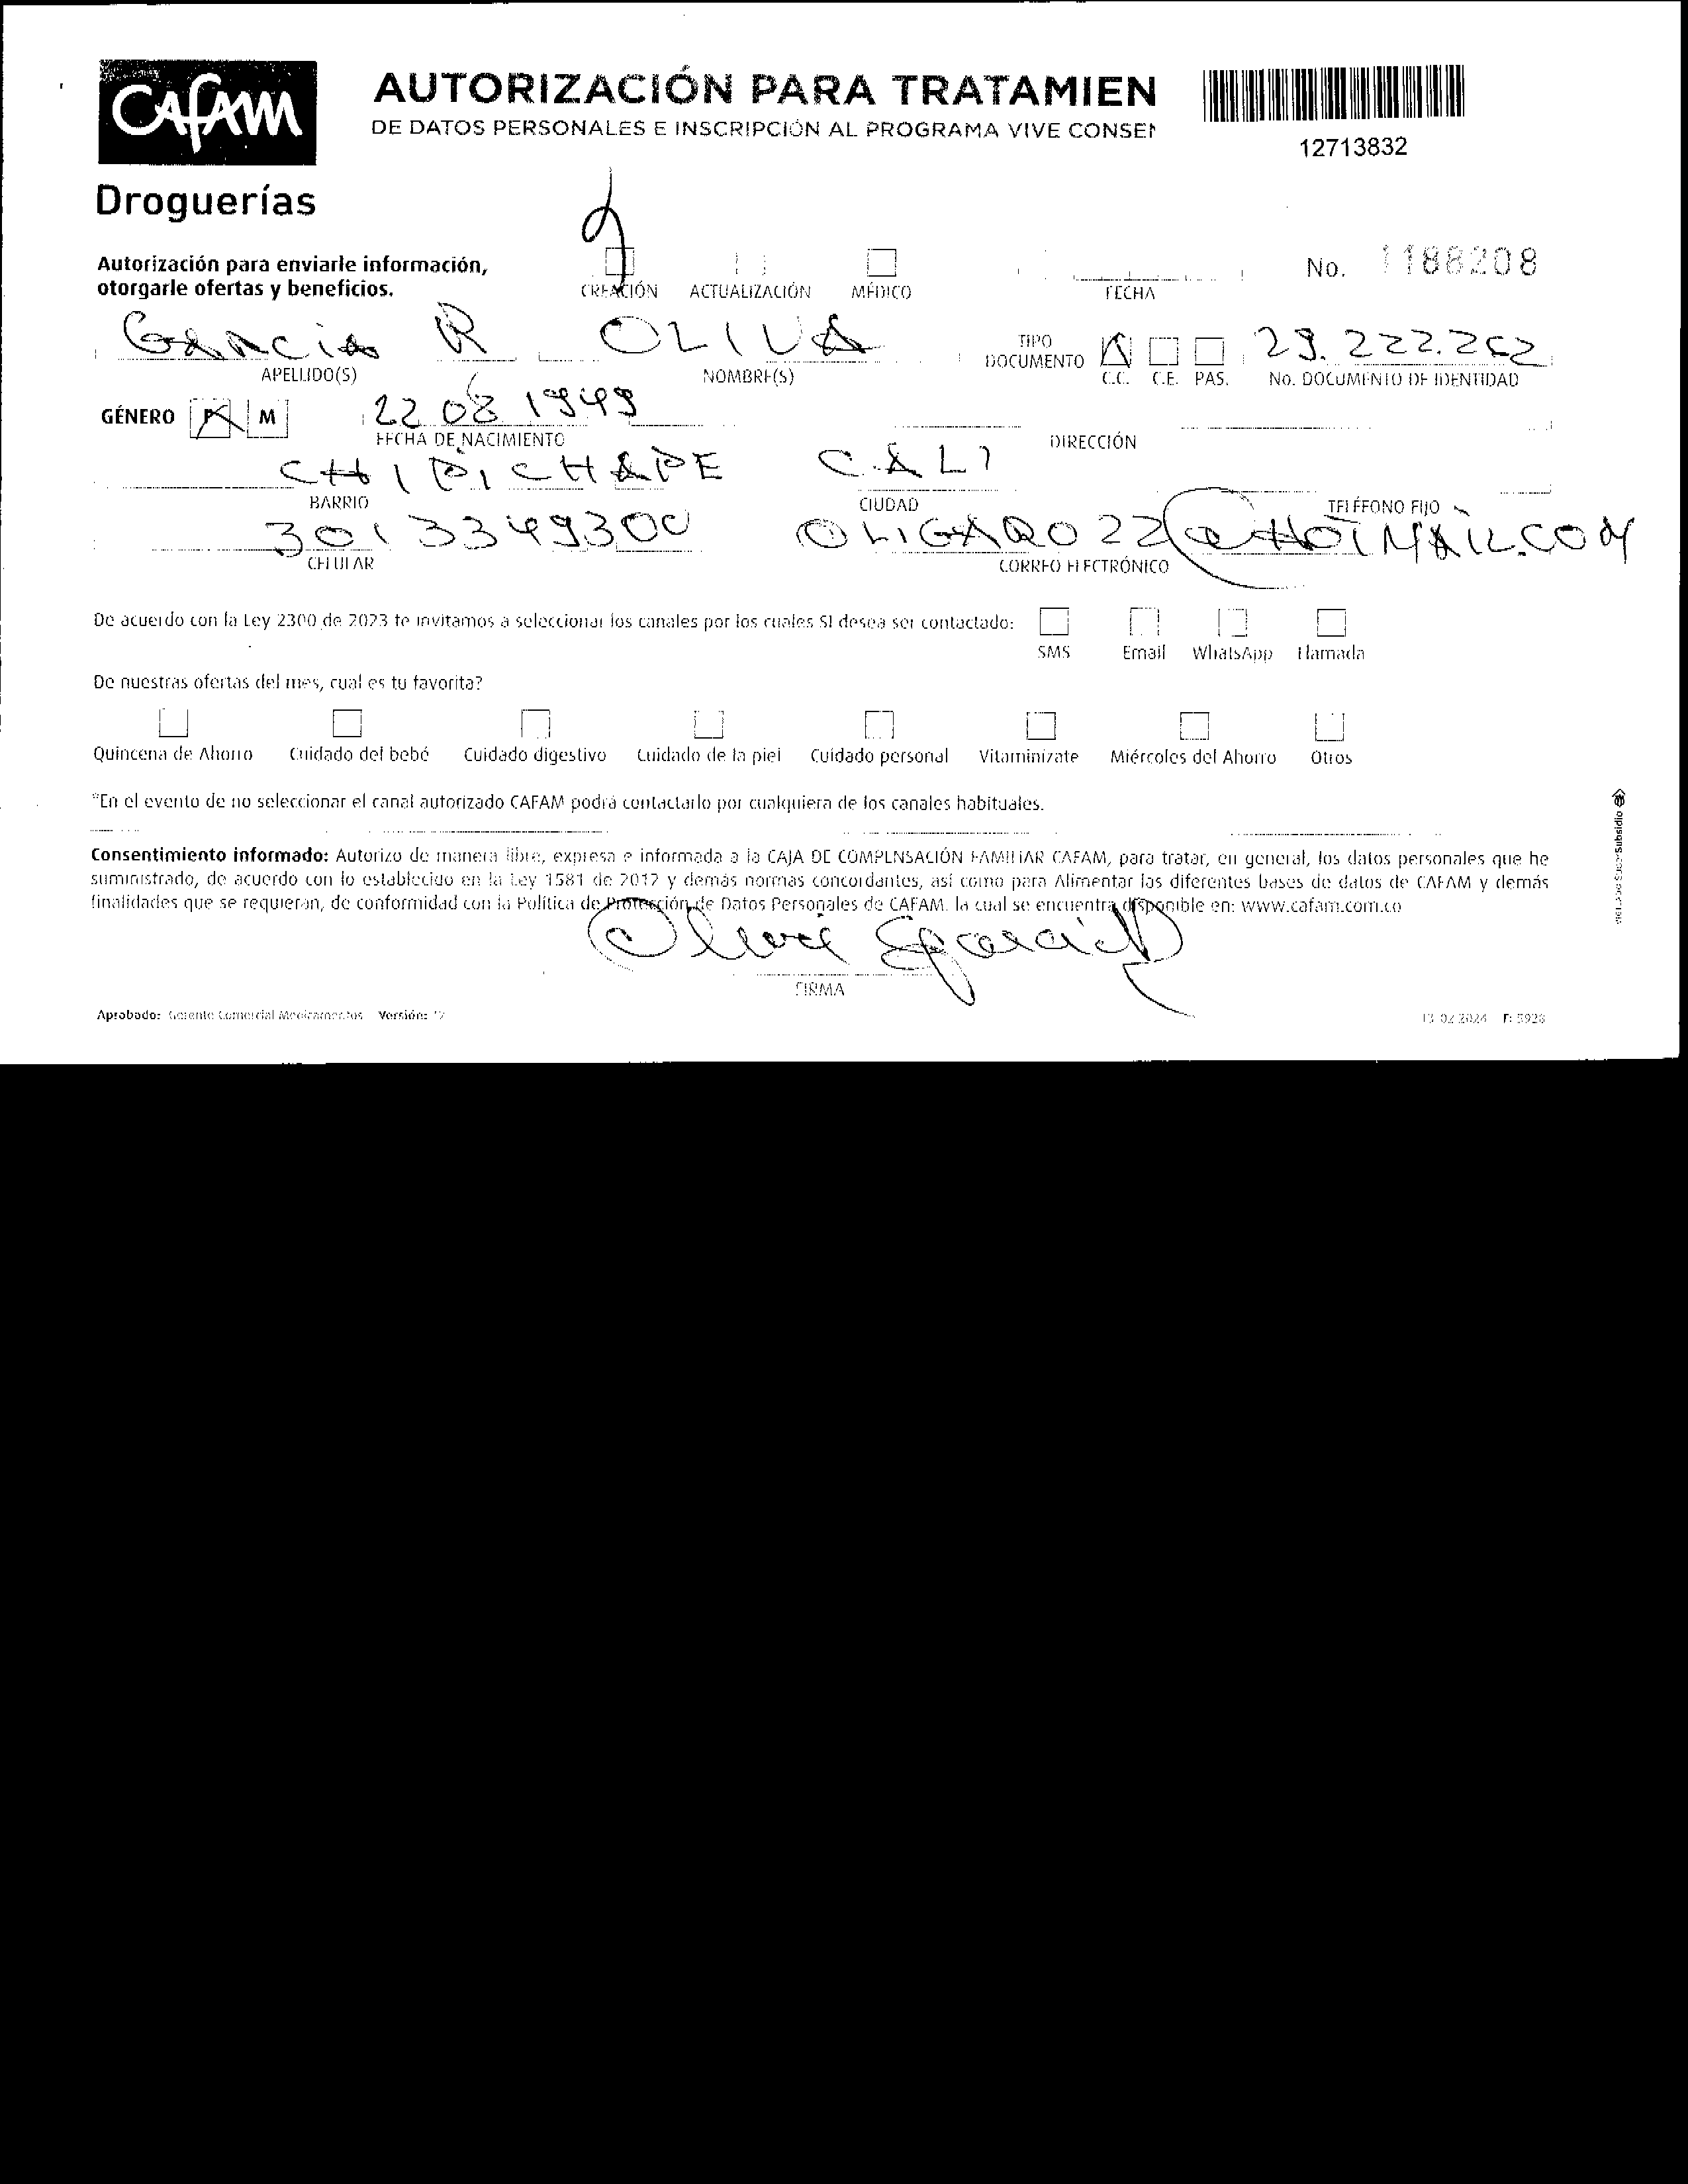 CAFAM
AUTORIZACIÓN PARA TRATAMIEN
DE DATOS PERSONALES E INSCRIPCIÓN AL PROGRAMA VIVE CONSEN
12713832
Droguerías
Autorización para enviarle información,
otorgarle ofertas y beneficios.
CREACIÓN ACTUALIZACIÓN MÉDICO
FECHA
No. 1188208
GARCIA R OLIVA
APELLIDO(S) NOMBRE(S)
TIPO
DOCUMENTO
C.C. C.E. PAS.
29.222.262
No. DOCUMENTO DE IDENTIDAD
GÉNERO F M 22 08 1949
FECHA DE NACIMIENTO DIRECCIÓN
CHIPICHAPE CALI
BARRIO CIUDAD TELÉFONO FIJO
301 3349300 OLIGARO22@HOTMAIL.COM
CELULAR CORREO ELECTRÓNICO
De acuerdo con la Ley 2300 de 2023 te invitamos a seleccionar los canales por los cuales SI desea ser contactado:
SMS Email WhatsApp Llamada
De nuestras ofertas del mes, cual es tu favorita?
Quincena de Ahorro Cuidado del bebé Cuidado digestivo Cuidado de la piel Cuidado personal Vitaminízate Miércoles del Ahorro Otros
*En el evento de no seleccionar el canal autorizado CAFAM podrá contactarlo por cualquiera de los canales habituales.
Consentimiento informado: Autorizo de manera libre, expresa e informada a la CAJA DE COMPENSACIÓN FAMILIAR CAFAM, para tratar, en general, los datos personales que he
suministrado, de acuerdo con lo establecido en la Ley 1581 de 2012 y demás normas concordantes, así como para Alimentar las diferentes bases de datos de CAFAM y demás
finalidades que se requieran, de conformidad con la Política de Protección de Datos Personales de CAFAM, la cual se encuentra disponible en: www.cafam.com.co
FIRMA
Aprobado: Gerente Comercial Medicamentos Versión: 12
13 02 2024 F: 5928